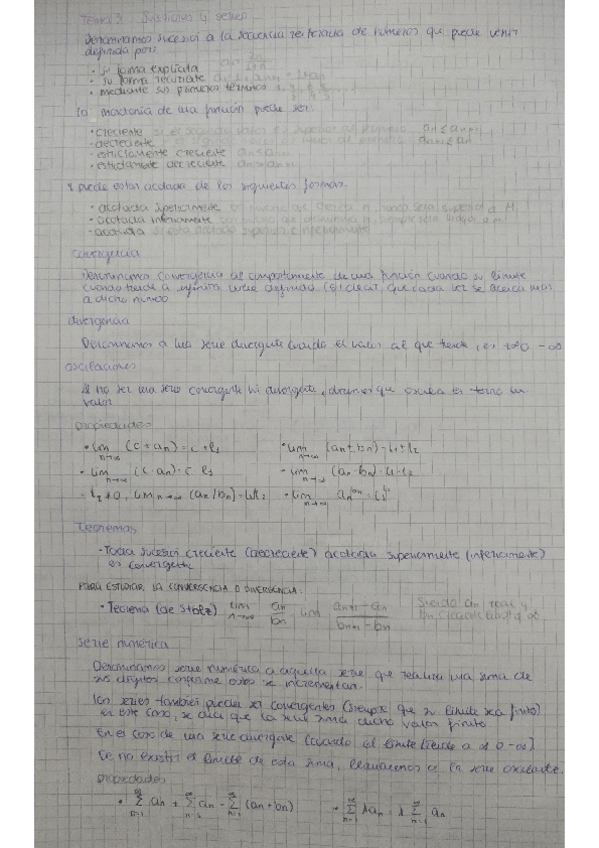 Tema 3: Sucesiones y series
Denominamos sucesión a la secuencia de números que puede venir
definida por:
• su forma explícita
• su forma recurrente
• mediante sus primeros términos
La monotonía de una función puede ser:
• creciente si el segundo valor es superior al primero an ≤ an+1
• decreciente an+1 ≤ an
• estrictamente creciente an < an+1
• estrictamente decreciente an > an+1
Y puede estar acotada de las siguientes formas.
• acotada superiormente
• acotada inferiormente
• acotada si está acotada superior e inferiormente
convergencia
Denominamos convergencia al comportamiento de una función cuando su límite
cuando tiende a infinito viene definido (es decir, que cada vez se acerca más
a dicho número
divergencia
Denominamos a una serie divergente cuando el valor al que tiende, es +∞ o -∞
oscilaciones
Al no ser una serie convergente ni divergente, diremos que oscila en torno un
valor
Propiedades
• lim n→∞ (c + an) = c + l1 • lim n→∞ (an + bn) = l1 + l2
• lim n→∞ (c · an) = c · l1 • lim n→∞ (an · bn) = l1 · l2
• l2 ≠ 0, lim n→∞ (an / bn) = l1/l2 • lim n→∞ an^bn = l1^l2
Teoremas
• Toda sucesión creciente (decreciente) acotada superiormente (inferiormente)
es convergente
PARA ESTUDIAR LA CONVERGENCIA O DIVERGENCIA:
• Teorema (de Stolz) lim n→∞ an/bn = lim (an+1 - an)/(bn+1 - bn) Siendo an real y
serie numérica
Denominamos serie numérica a aquella serie que realiza una suma de
sus dígitos conforme estos se incrementan.
Las series también pueden ser convergentes (siempre que su límite sea finito)
en este caso, se dice que la serie suma dicho valor finito
En el caso de una serie divergente (cuando el límite tiende a ∞ o -∞).
De no existir el límite de esta suma, llamaremos a la serie oscilante.
Propiedades
• ∞ Σ n=1 an + ∞ Σ n=1 an = ∞ Σ n=1 (an + bn) • ∞ Σ n=1 λan = λ ∞ Σ n=1 an